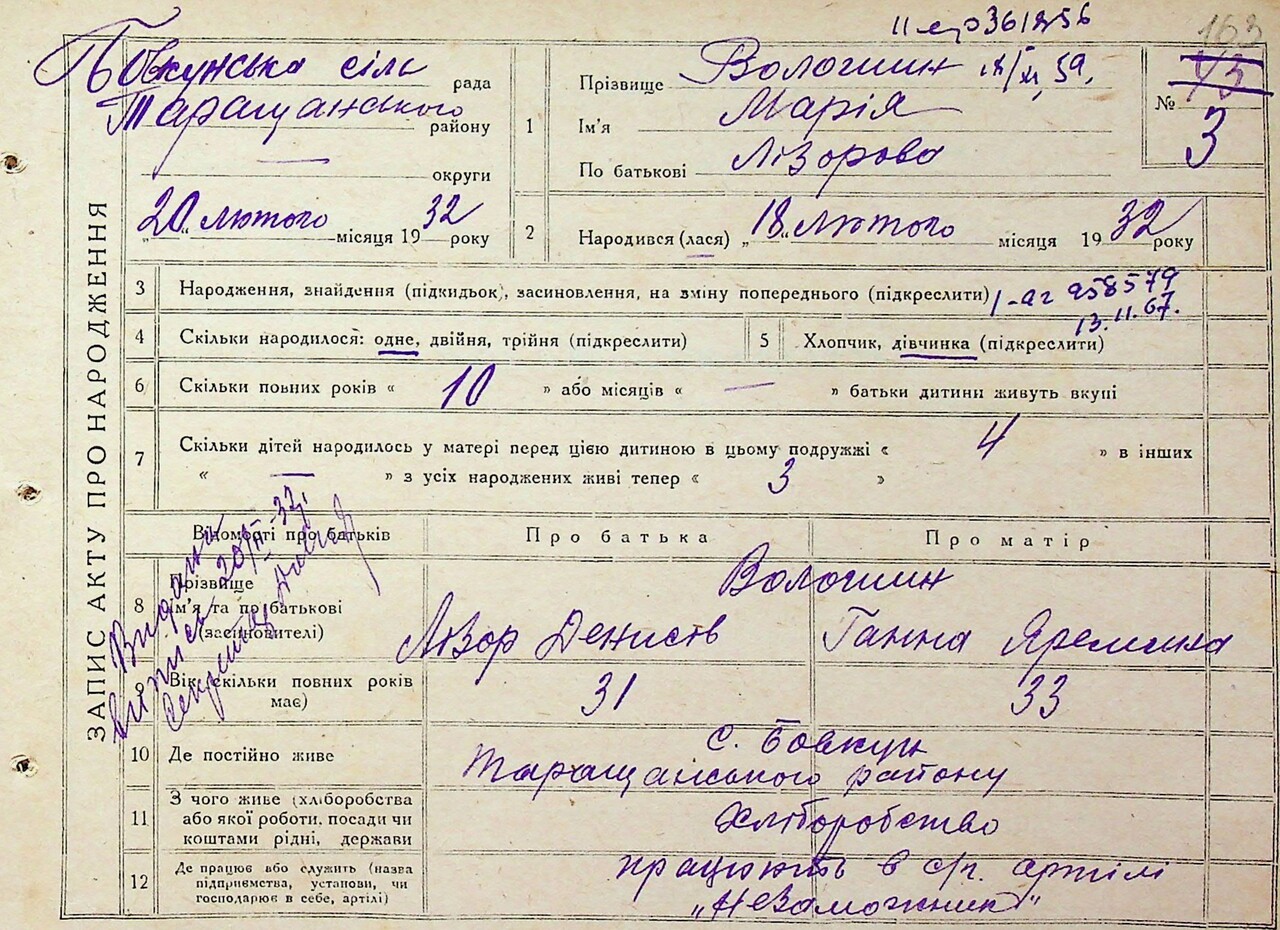 163
ЗАПИС АКТУ ПРО НАРОДЖЕННЯ
Бовкунська сіль рада
Таращанського району
— округи
„20“ лютого місяця 1932 року
1 Прізвище Волошин
Ім'я Марія
По батькові Лізорова
№ 73
3
2 Народився (лася) „18“ лютого місяця 1932 року
3 Народження, знайдення (підкидьок), засиновлення, на зміну попереднього (підкреслити)
958579
13.11.67.
4 Скільки народилося: одне, двійня, трійня (підкреслити)
5 Хлопчик, дівчинка (підкреслити)
6 Скільки повних років « 10 » або місяців « — » батьки дитини живуть вкупі
7 Скільки дітей народилось у матері перед цією дитиною в цьому подружжі « 4 » в інших
« — » з усіх народжених живі тепер « 3 »
Відомості про батьків Про батька Про матір
8 Прізвище
Ім'я та по батькові
(засиновителі)
Волошин
Лізор Денисів Ганна Яремина
9 Вік (скільки повних років
має)
31 33
10 Де постійно живе
с. Бовкун
Таращанського району
11 З чого живе (хліборобства
або якої роботи, посади чи
коштами рідні, держави
Хліборобство
12 Де працює або служить (назва
підприємства, установи, чи
господарює в себе, артілі)
працюють в с/г. артілі
„Незаможник“
Видана
виписъ 20/II-32р.
Секретар